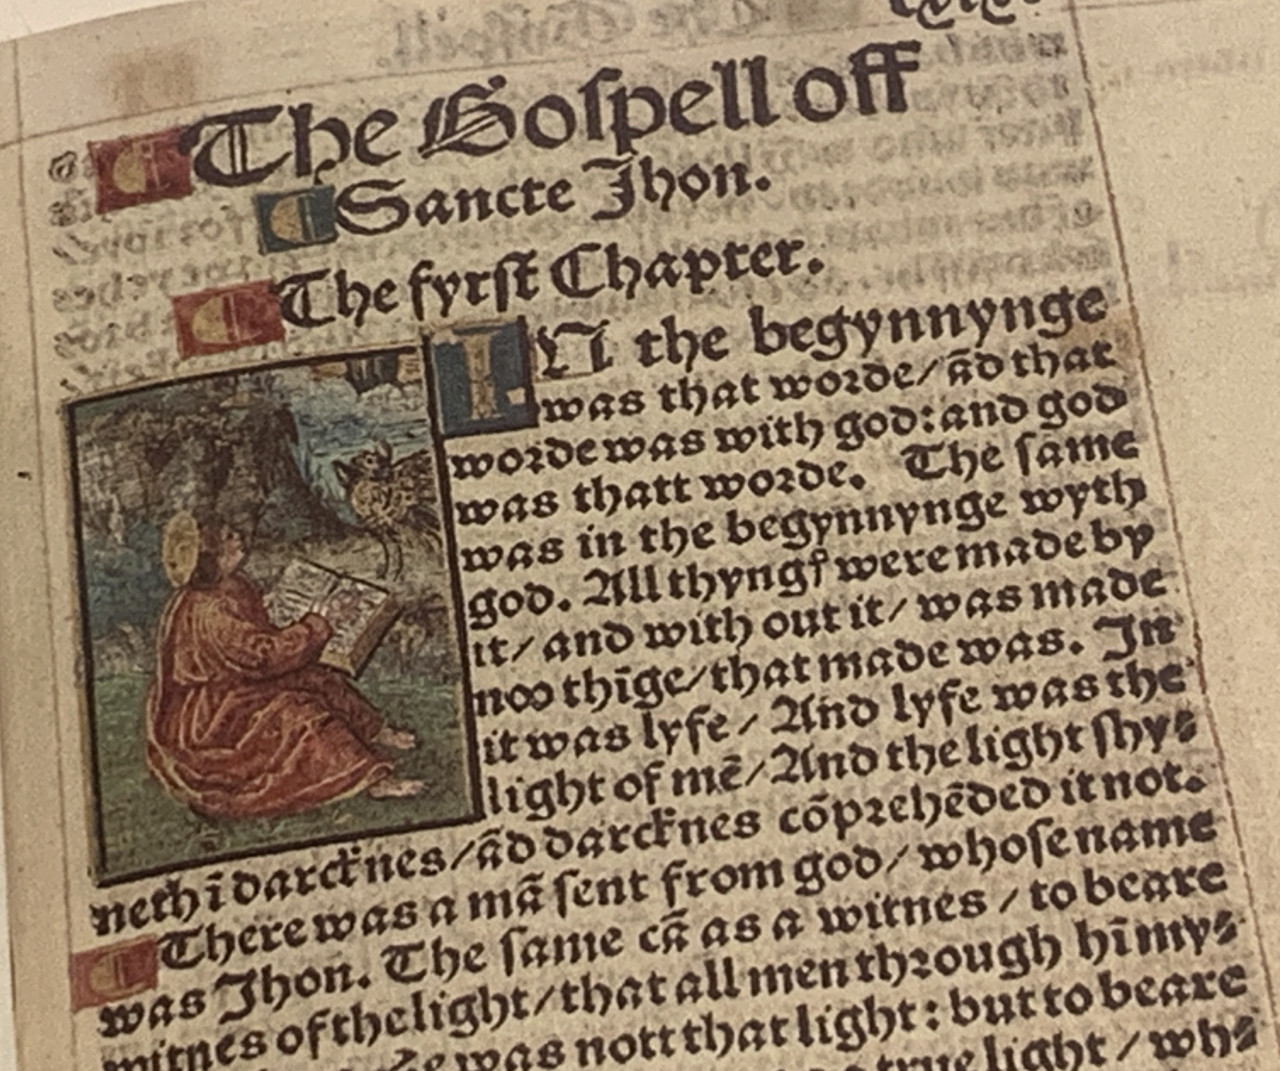 The Goſpell off
Sancte Jhon.
The fyrſt Chapter.
IN the begynnynge
was that worde/ ād that
worde was with god: and god
was thatt worde. The ſame
was in the begynnynge wyth
god. All thyngꝭ were made by
it/ and with out it/ was made
noo thīge/ that made was. In
it was lyfe/ And lyfe was the
light of mē/ And the light ſhy⸗
neth ī darcknes/ ād darcknes cōprehēded it not.
There was a mā ſent from god/ whoſe name
was Jhon. The ſame cā as a witnes/ to beare
witnes of the light/ that all men through hī my⸗
was nott that light: but to beare
true light/ wh⸗